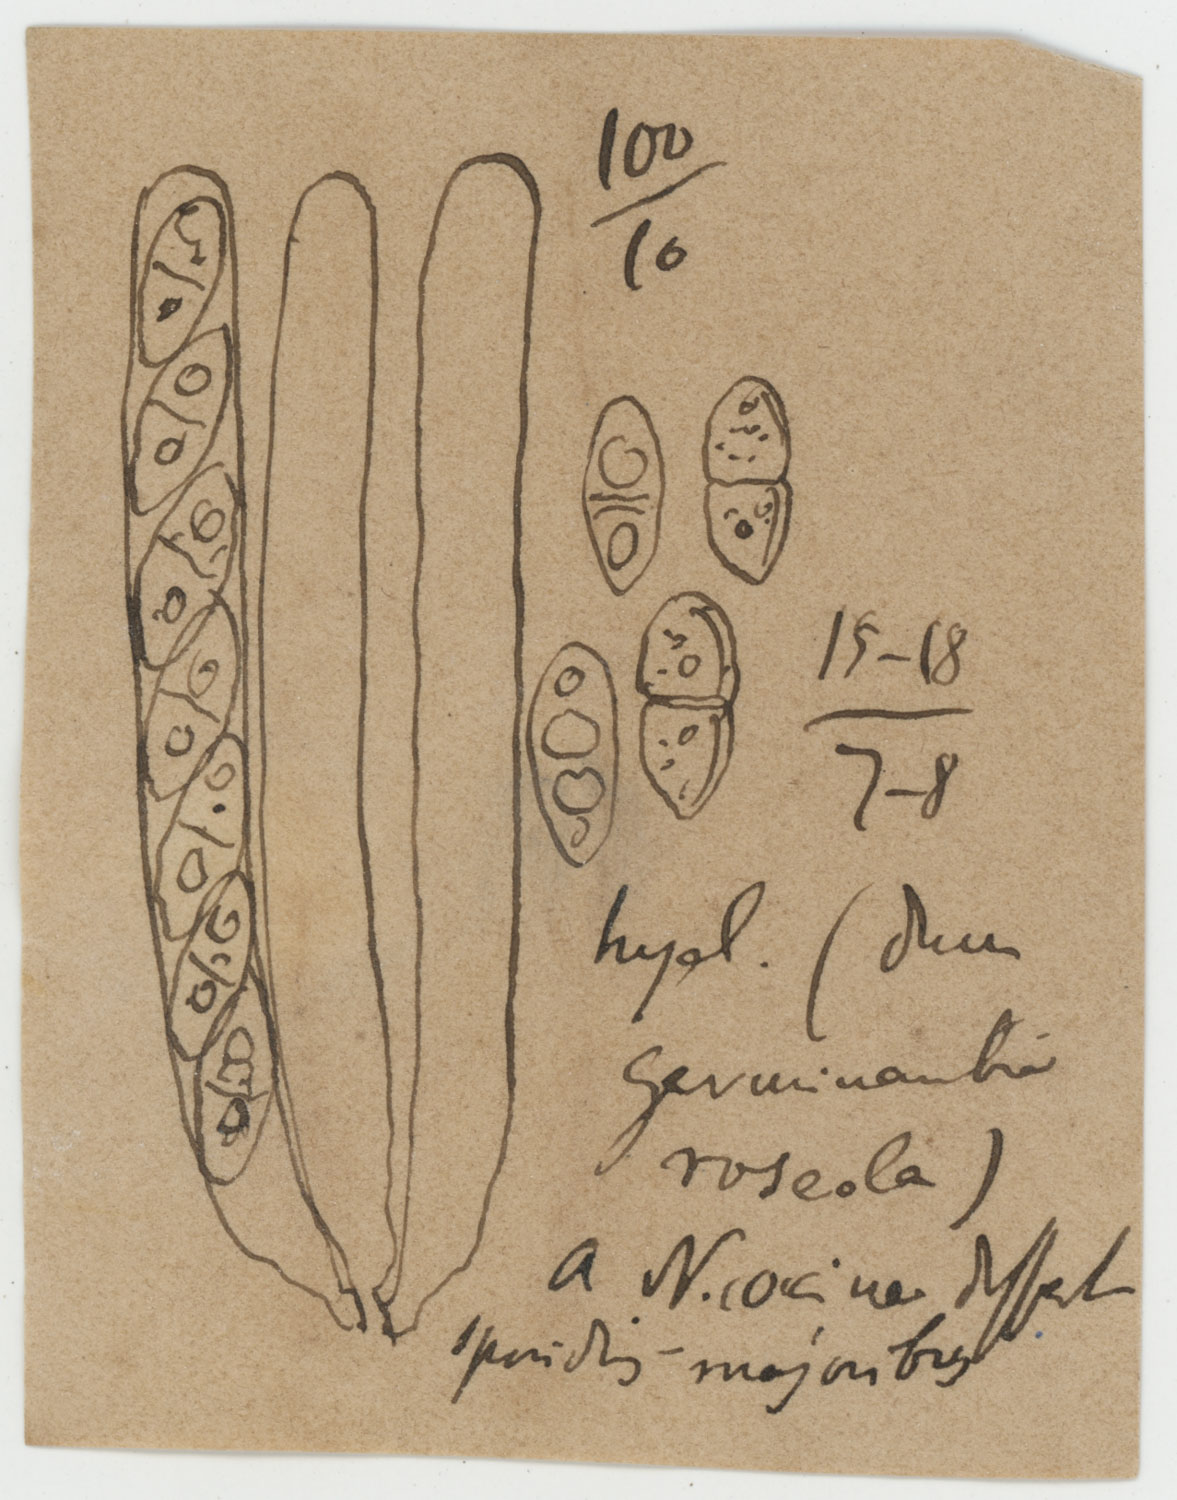 100
10
15-18
7-8
hyal. (dum
germinantia
roseola)
a N. coccinea differt
sporidiis majoribus